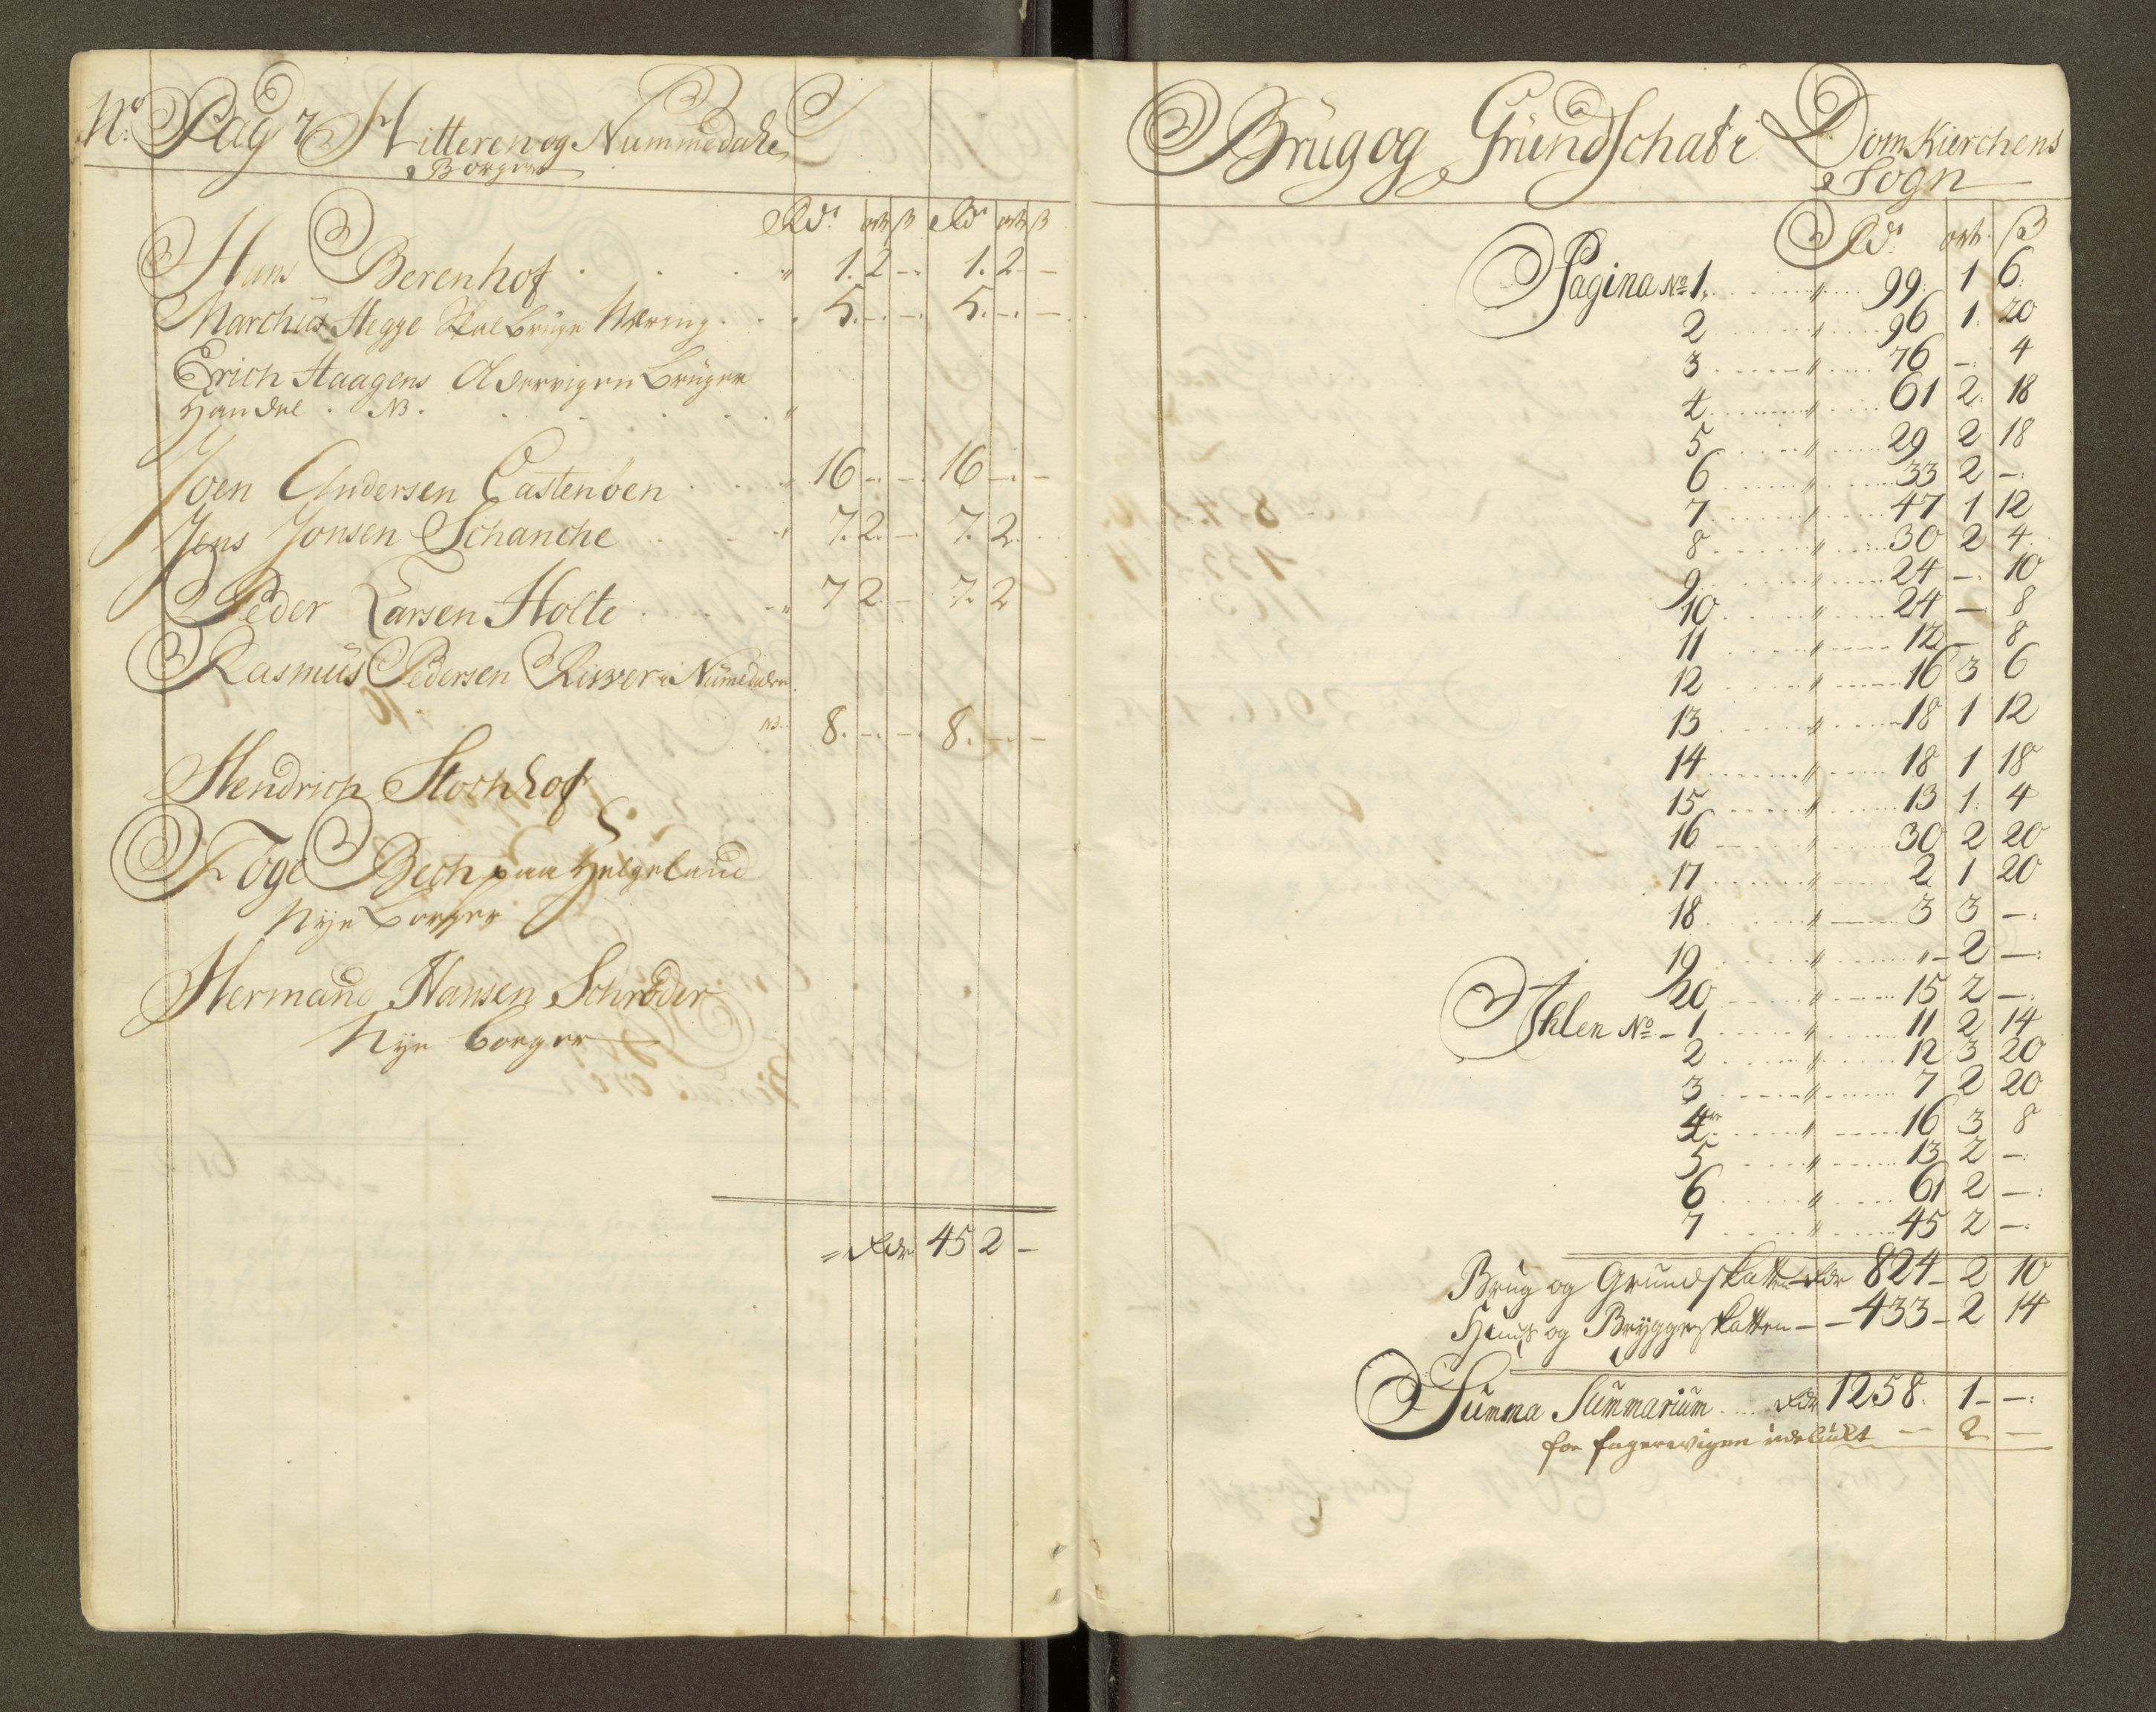 No: Pag 7 Hitteren og Nummedahls
Borgere
Rdr ort ß Rdr ort ß
Hans Berenhof . . . " 1. 2 -. 1. 2 -
Marchus Hegge Skal bruge Næring . . . 5. -. -. 5. -. -
Erich Haagens bruger
Handel . NB. "
Joen Andersen Castenöen . . " 16 -. -. 16 -. -
Jens Jonsen Schanche . . " 7. 2. -. 7. 2.
Peder Larsen Holte . . . " 7 2. - 7. 2
Rasmus Pedersen Risver i Nümedalen
NB. 8. -. -. 8. -. -
Hendrich Stochhof
Toge Bech paa Helgeland
Nye borger
Hermand Hansen Schröder
Nye borger
= Rdr 45 2 -
Brug og Grund Schat i Dom Kierchens
Sogn
Rdr ort. ß
Pagina No 1. " 99. 1 6.
2 " 96 1. 20
3 " 76 -. 4
4 " 61 2. 18
5 " 29 2 18
6 " 33 2 -.
7 " 47 1 12
8 " 30 2 4.
9 " 24 -. 10
10 " 24 - 8
11 " 12 - 8
12 " 16 3 6
13 " 18 1 12
14 " 18 1 18
15 " 13 1. 4
16 " 30 2 20
17 " 2 1 20
18 " 3 3 -.
19 " " 2 -.
20 " 15 2 -.
Ihlen No - 1 " 11 2 14
2 " 12 3 20
3 " 7 2 20
4 " 16 3 8
5 " 13 2 -.
6 " 61 2 -.
7 " 45 2 -.
Brug og Grundskatten Rdr 824 - 2 10
Huus og Bryggeskatten - - 433 - 2 14
Summa Summarium Rdr 1258. 1 - -.
for fagerwigen udelukt - 2 -